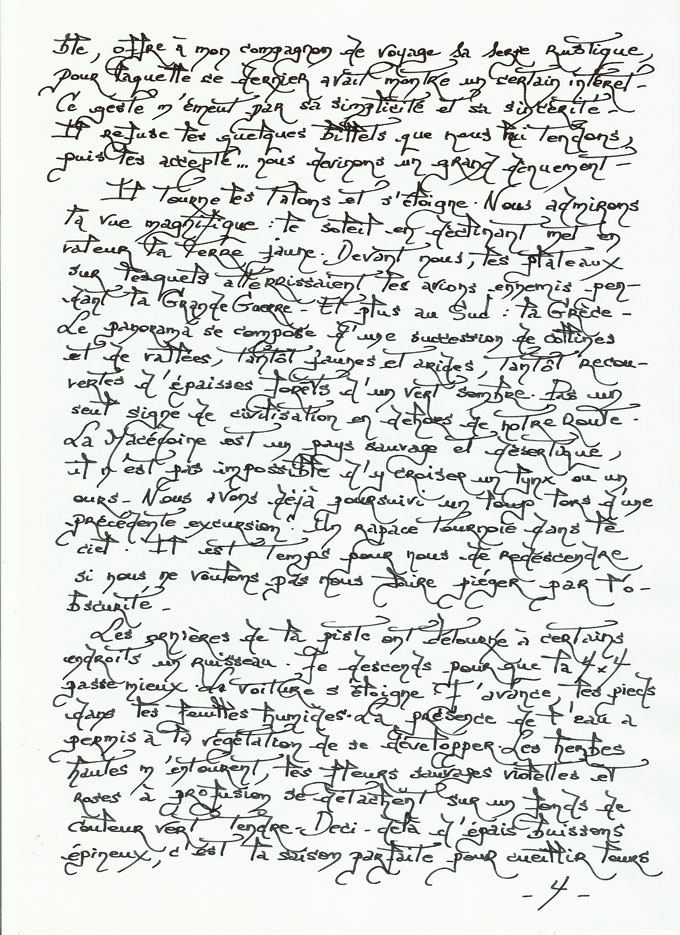 ble, offre à mon compagnon de voyage sa serpe rustique,
pour laquelle ce dernier avait montré un certain intérêt -
Ce geste m'émeut par sa simplicité et sa sincérité -
Il refuse les quelques billets que nous lui tendons,
puis les accepte... nous devinons un grand dénuement -
Il tourne les talons et s'éloigne. Nous admirons
la vue magnifique : le soleil en déclinant met en
valeur la terre jaune. Devant nous, les plateaux
sur lesquels atterrissaient les avions ennemis pen-
dant la Grande Guerre - Et plus au Sud : la Grèce -
Le panorama se compose d'une succession de collines
et de vallées, tantôt jaunes et arides, tantôt recou-
vertes d'épaisses forêts d'un vert sombre. Pas un
seul signe de civilisation en dehors de notre Route.
La Macédoine est un pays sauvage et désertique,
il n'est pas impossible d'y croiser un lynx ou un
ours - Nous avons déjà poursuivi un loup lors d'une
précédente excursion. Un rapace tournoie dans le
ciel. Il est temps pour nous de redescendre
si nous ne voulons pas nous faire piéger par l'o-
bscurité -
Les ornières de la piste ont détourné à certains
endroits un ruisseau. Je descends pour que la 4x4
passe mieux. La voiture s'éloigne. J'avance, les pieds
dans les feuilles humides. La présence de l'eau a
permis à la végétation de se développer. Les herbes
hautes m'entourent, les fleurs sauvages violettes et
roses à profusion se détachent sur un fonds de
couleur vert tendre - Deci - delà d'épais buissons
épineux, c'est la saison parfaite pour cueillir leurs
- 4 -